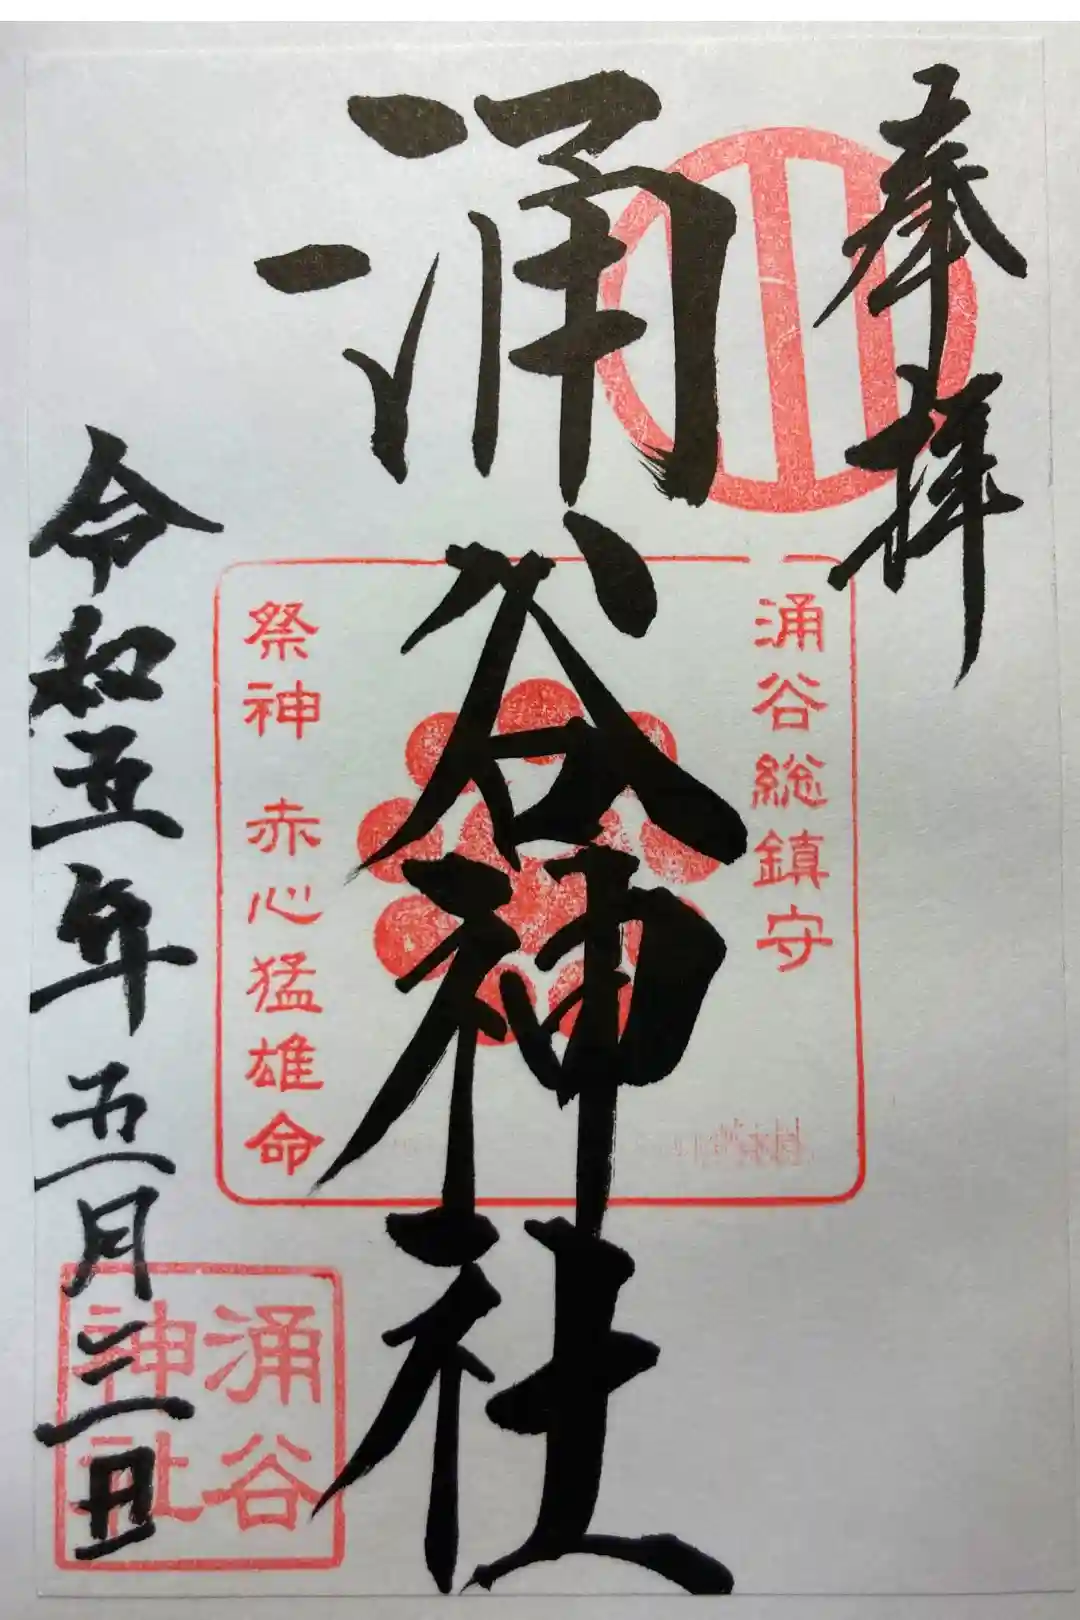 奉拝
涌谷総鎮守
涌谷神社
祭神 赤心猛雄命
令和五年五月三日
涌谷
神社